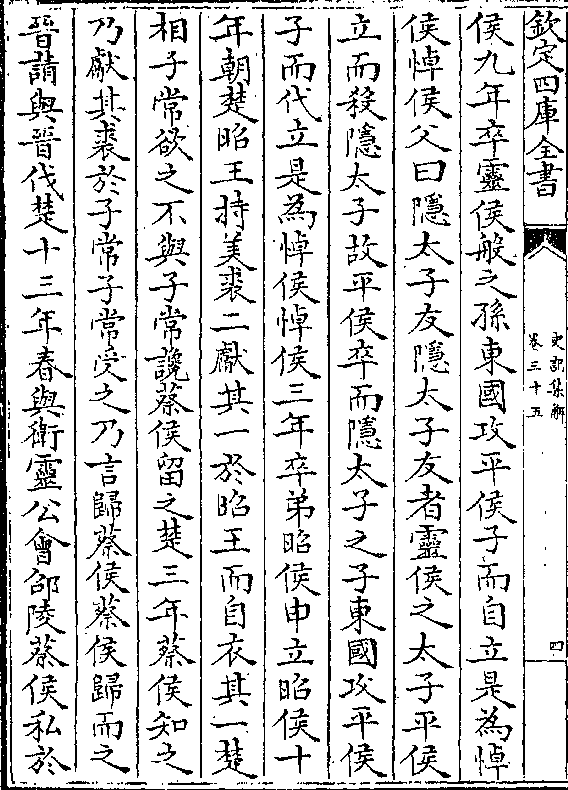 欽定四庫全書
史記集解
卷三十五
四
侯九年卒靈侯般之孫東國攻平侯子而自立是為悼
侯悼侯父曰隱太子友隱太子友者靈侯之太子平侯
立而殺隱太子故平侯卒而隱太子之子東國攻平侯
子而代立是為悼侯悼侯三年卒弟昭侯申立昭侯十
年朝楚昭王持美裘二獻其一於昭王而自衣其一楚
相子常欲之不與子常讒蔡侯留之楚三年蔡侯知之
乃獻其裘於子常子常受之乃言歸蔡侯蔡侯歸而之
晉請與晉伐楚十三年春與衛靈公會邵陵蔡侯私於